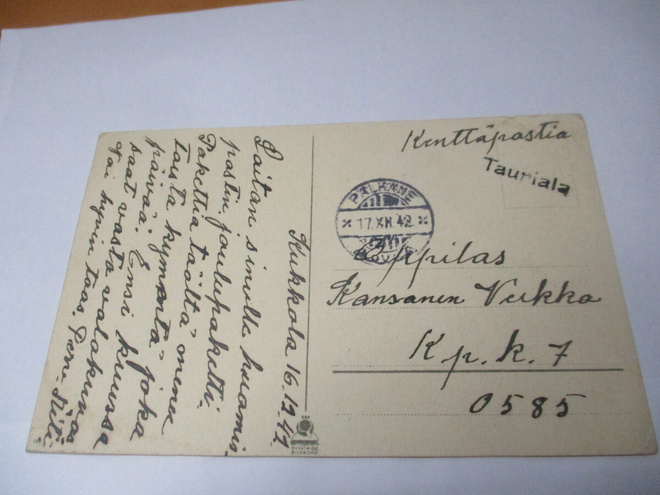 Kukkola 16.12.42
Laitan sinulla huomis
postin joulupaketti.
Pakettia täältä menee
toista kymmentä joka
päivää. Ensi kuussa
saat vasta valokuvas
Voi hyvin taas Terv. Äiti
Kenttäpostia
Tauriala
PÄLKÄNE
17.XII.42
Oppilas
Kansanen Veikko
K.p.k. 7
0585